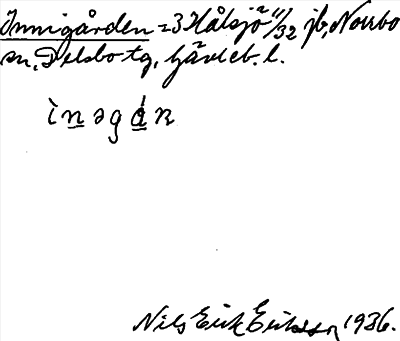 Innigården = 3 Hålsjö 11/32 jb, Norrbo
sn, Delsbo tg, Gävleb. l.
ìnəgán
Nils Erik Eriksson 1936.